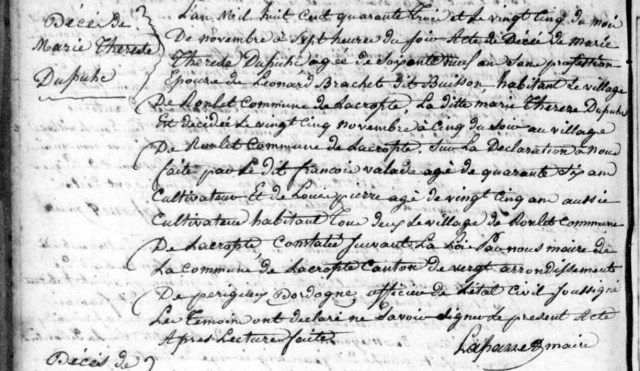 Décès de
Marie Therese
Dupuhe
L'an Mil huit Cent quarante Trois et Le vingt Cinq du moi
De novembre à Sept heures du Soir Acte de Décé de marie
Therese Dupuhe agée de Soixante neuf an Sans proffestion
Epouse de Leonard Brachet dit Buisson habitant Le village
De Roulet Commune de Lacropte, La ditte marie Therese Dupuhe
Est décidée Le vingt Cinq novembre à Cinq du Soir au village
De Roulet Commune de Lacropte, Sur La Déclaration à nous
faite par Le dit francois valade agé de quarante Six an
Cultivateur Et de Louis pierre agé de vingt Cinq an aussie
Cultivateur habitant Tous deux Le village de Roulet Commune
De Lacropte, Constatée Suivant La Loi Par nous maire de
La Commune de Lacropte Canton de vergt arrondissement
De perigueux Dordogne, officier de L'état Civil Soussigné
Les Temoin ont déclaré ne Savoir Signé de present Acte
Apres Lecture faite.
maire
Décès de